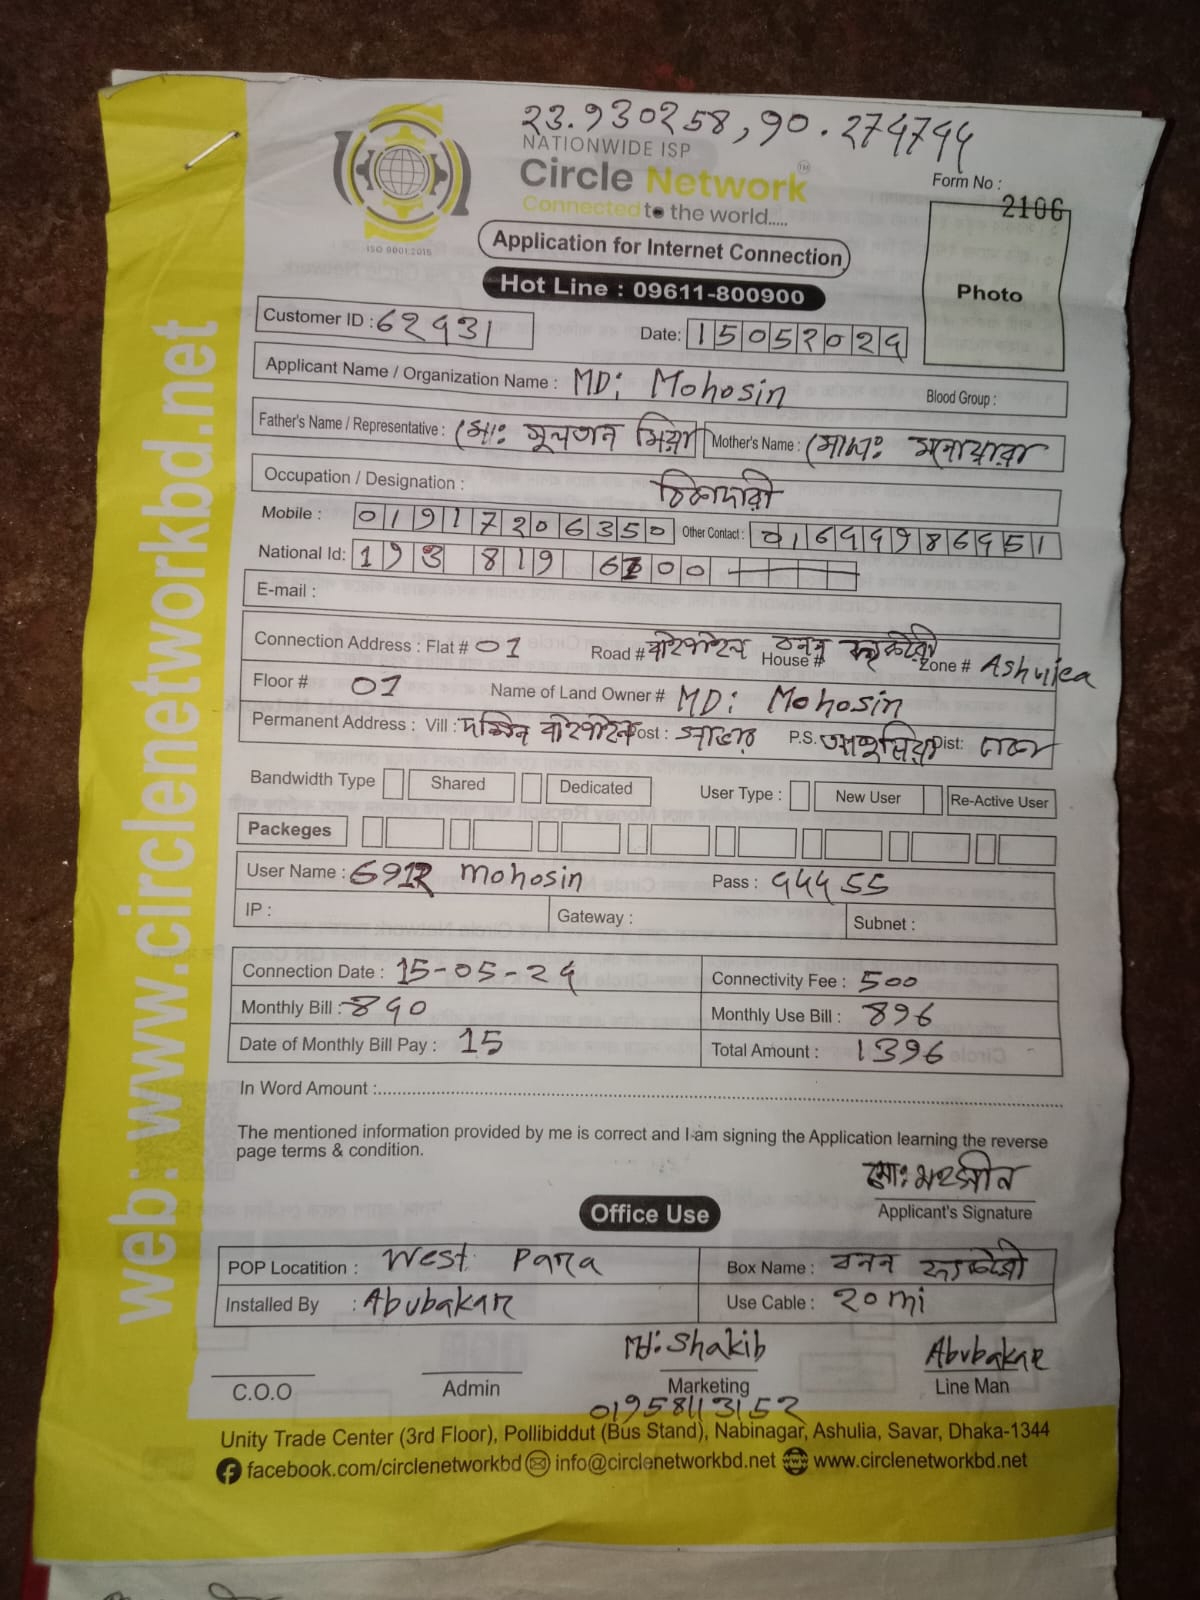 23.930258, 90.274744
NATIONWIDE ISP
Circle Network TM
Connected to the world.....
ISO 9001:2015
Form No :
2106
Application for Internet Connection
Hot Line : 09611-800900
Photo
Customer ID : 62431
Date: 15052024
Applicant Name / Organization Name : MD: Mohosin Blood Group :
Father's Name / Representative : মোঃ সুলতান মিয়া Mother's Name : মোসাঃ মনোয়ারা
Occupation / Designation : ঠিকাদারী
Mobile : 01917206350 Other Contact : 01644986451
National Id: 193 819 6200
E-mail :
Connection Address : Flat # 01 Road # বাইপাইল House # বনন ফ্যাক্টেরী Zone # Ashulea
Floor # 01 Name of Land Owner # MD: Mohosin
Permanent Address : Vill : দক্ষিন বাইপাইল Post : সাভার P.S. Dist: ঢাকা
Bandwidth Type Shared Dedicated User Type : New User Re-Active User
Packeges
User Name : 6912 mohosin Pass : 44455
IP : Gateway : Subnet :
Connection Date : 15-05-24 Connectivity Fee : 500
Monthly Bill : 840 Monthly Use Bill : 896
Date of Monthly Bill Pay : 15 Total Amount : 1396
In Word Amount :
The mentioned information provided by me is correct and I am signing the Application learning the reverse
page terms & condition.
মোঃ মহসীন
Applicant's Signature
Office Use
POP Locatition : West Para Box Name : বনন ফ্যাক্টেরী
Installed By : Abubakar Use Cable : 20 mi
Md: Shakib Abubakar
C.O.O Admin Marketing Line Man
01958113152
Unity Trade Center (3rd Floor), Pollibiddut (Bus Stand), Nabinagar, Ashulia, Savar, Dhaka-1344
facebook.com/circlenetworkbd info@circlenetworkbd.net www.circlenetworkbd.net
web: www.circlenetworkbd.net